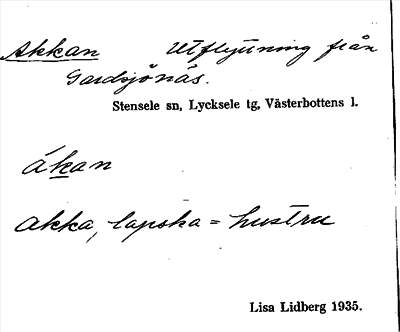 Akkan Utflyttning från
Gardsjönäs.
Stensele sn, Lycksele tg, Västerbottens l.
ákan
akka, lapska = hustru
Lisa Lidberg 1935.